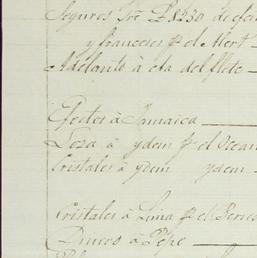 Seguros Sre £8230 de efec
y franceses pr el Mert
Adelanto à cta del flete
Efectos à Jamaica
Loza à ydem pr el Ocean
Cristales à ydem ydem
Cristales à Lima pr el Peric
Dinero à Pepe